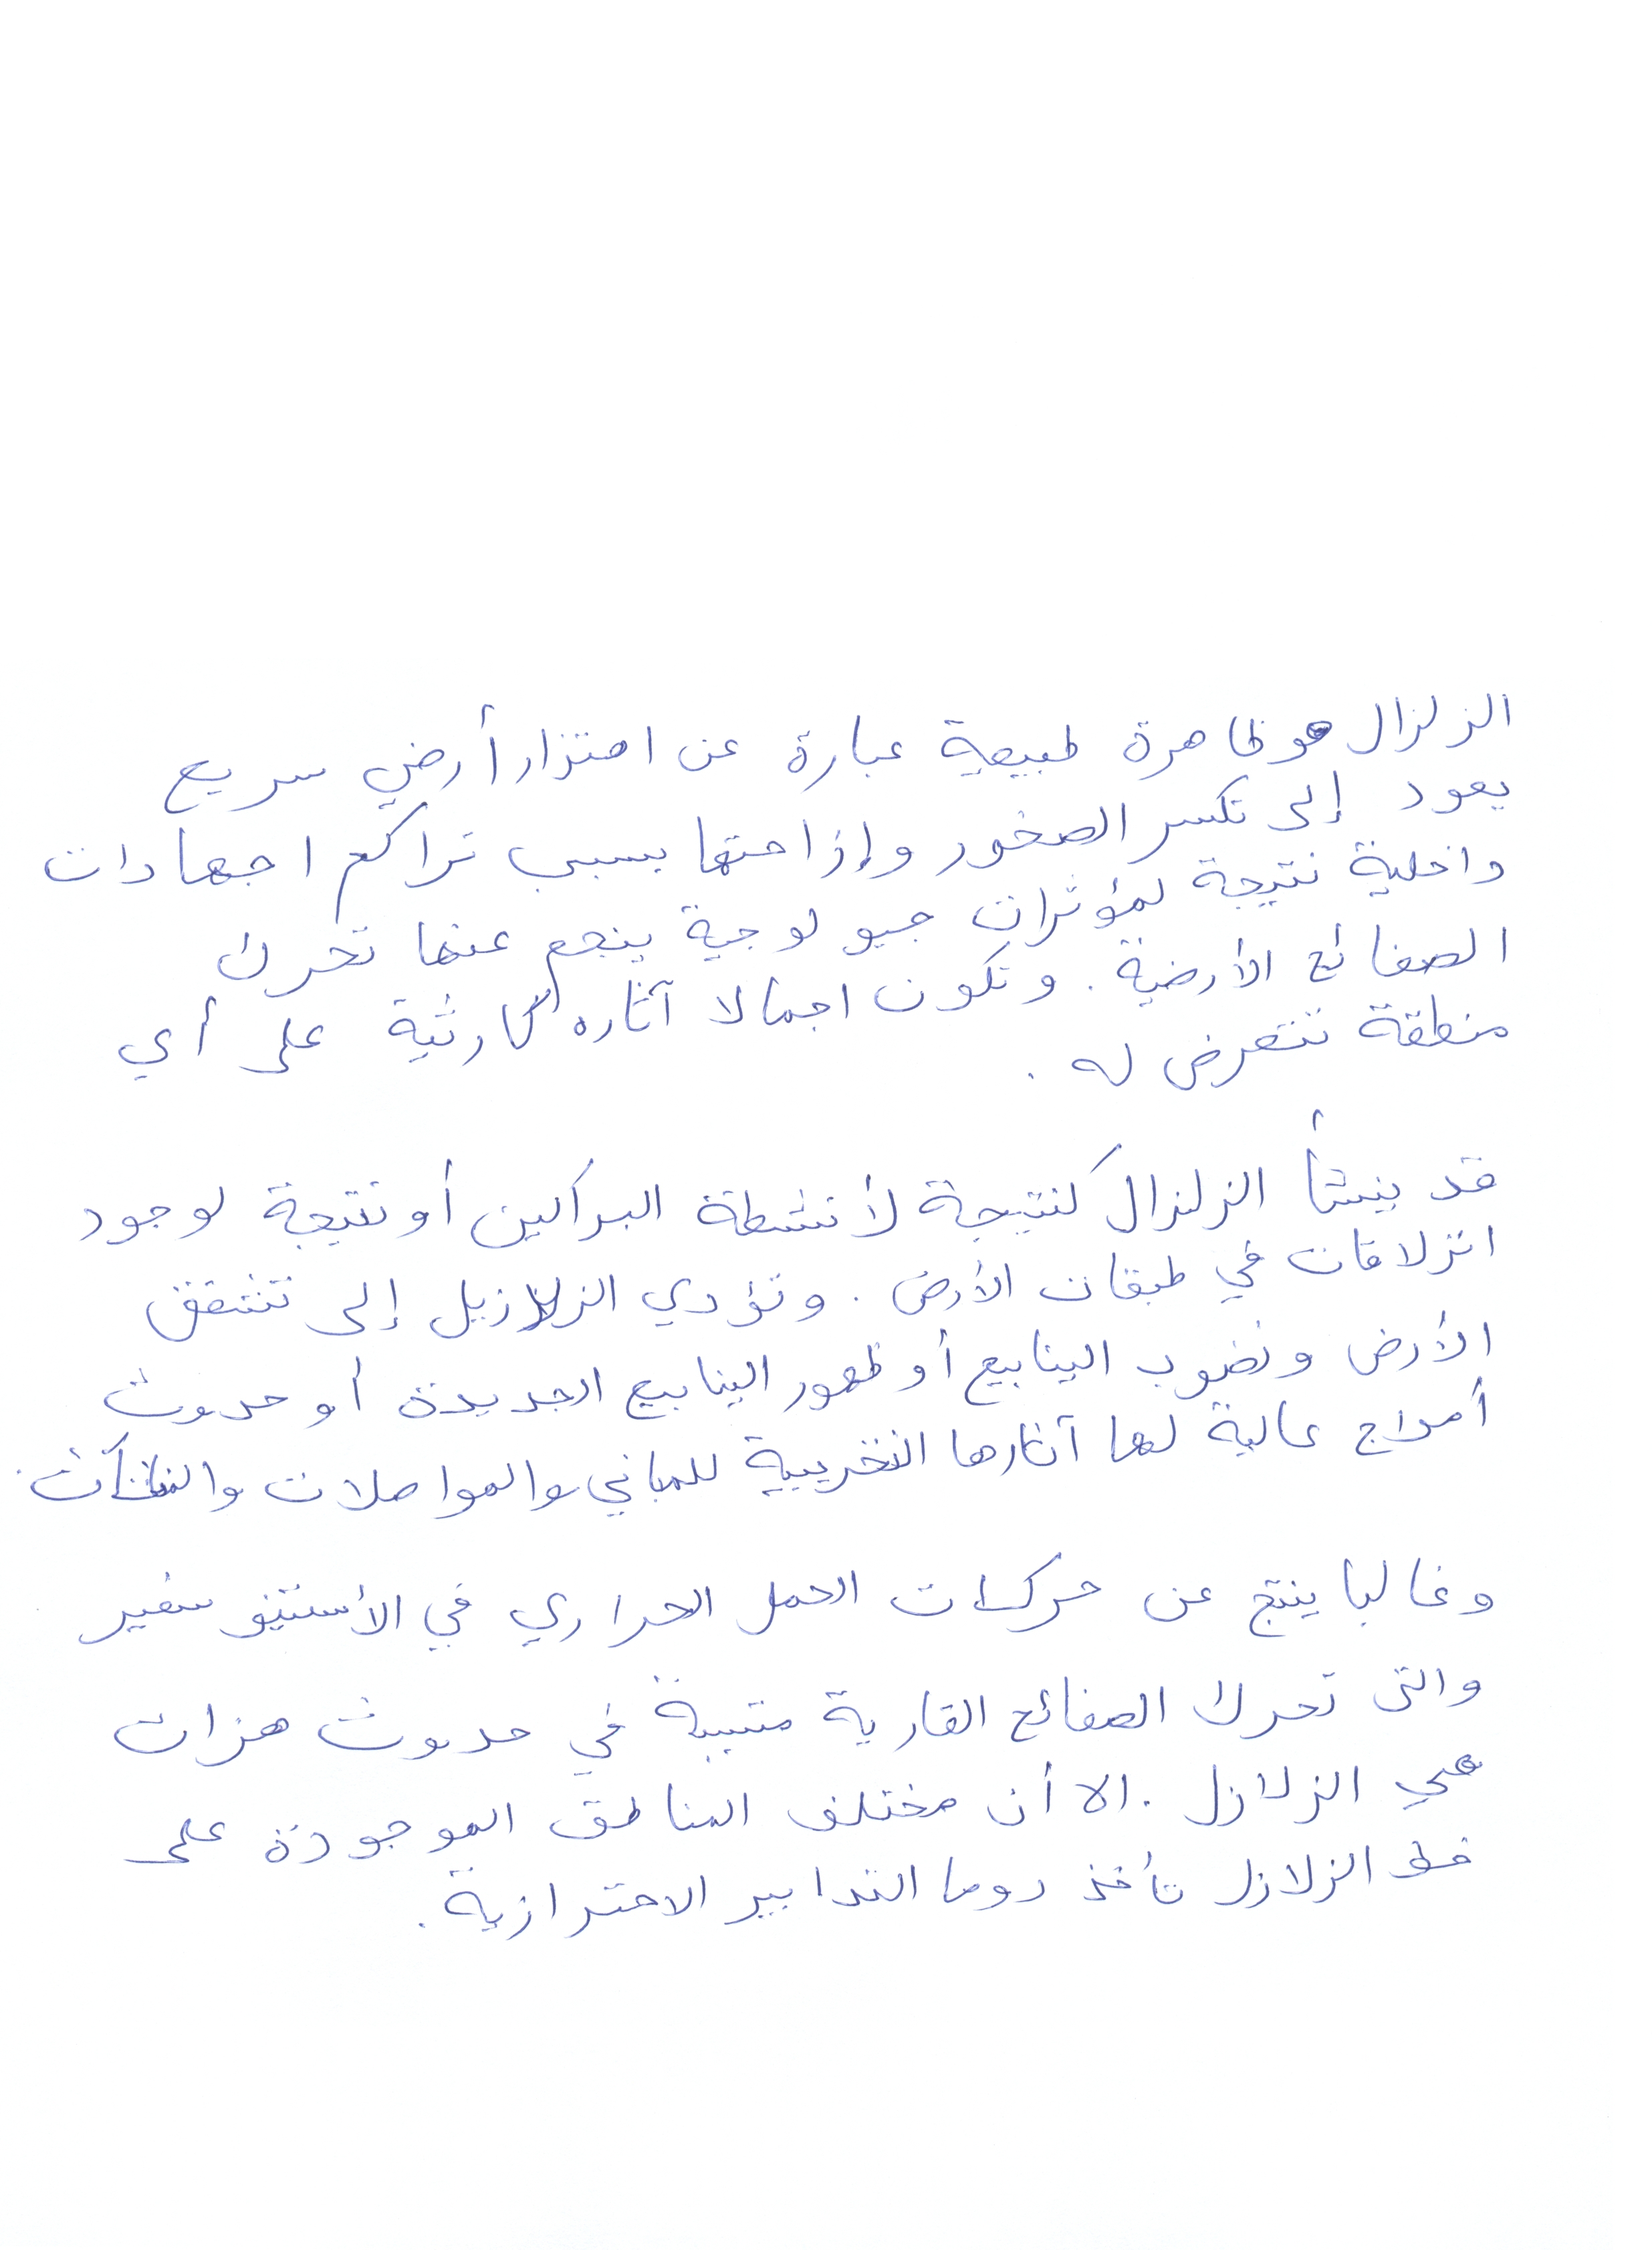 الزلزال هو ظاهرة طبيعية عبارة عن اهتزاز أرضي سريع
يعود إلى تكسر الصخور وإزاحتها بسبب تراكم اجهادات
داخلية نتيجة لمؤثرات جيولوجية ينجم عنها تحرك
الصفائح الأرضية. وتكون اجمالا آثاره كارثية على أي
منطقة تتعرض له.
قد ينشأ الزلزال كنتيجة لأنشطة البراكين أو نتيجة لوجود
انزلاقات في طبقات الأرض. وتؤدي الزلازيل إلى تشقق
الأرض ونضوب الينابيع أو ظهور الينابيع الجديدة أو حدوث
أمواج عالية لها آثارها التخريبية للمباني والمواصلات
وغالبا ينتج عن حركات الحمل الحراري في الأستينوسفير
والتي تحرك الصفائح القارية متسببة في حدوث هزات
هي الزلازل. الا أن مختلف المناطق الموجودة على
خط الزلازل تأخذ دوما التدابير الاحترازية.